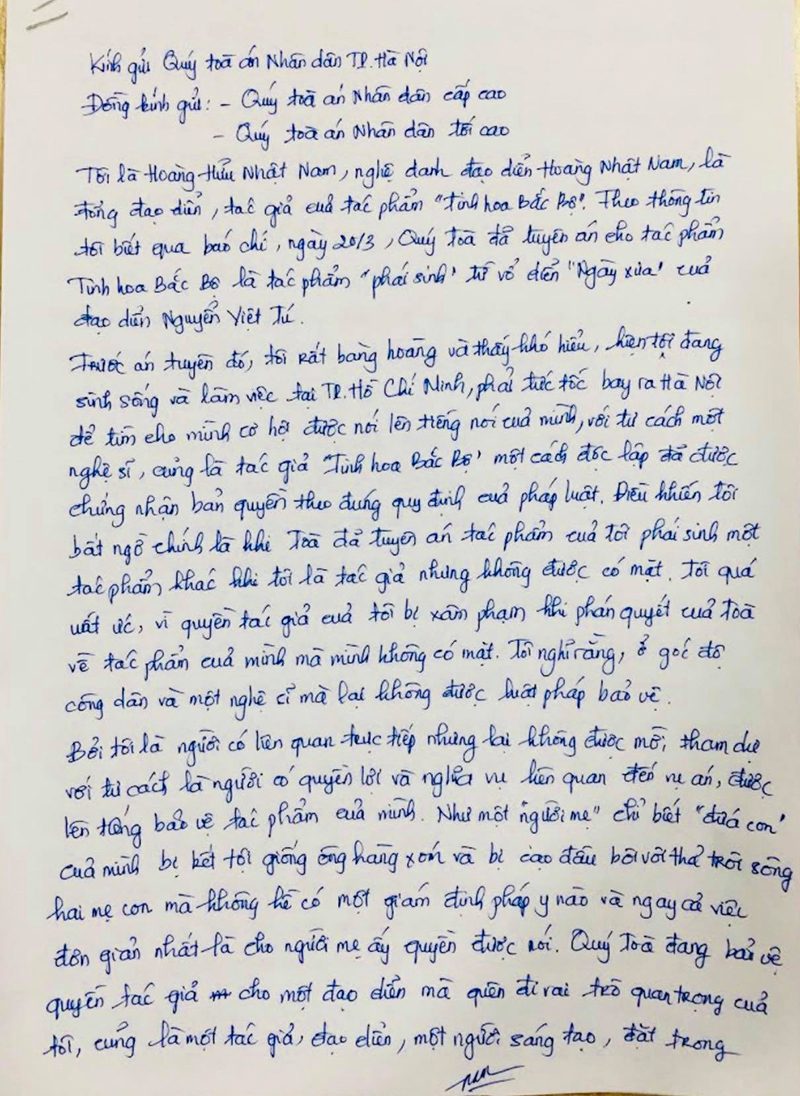 Kính gửi Quý toà án Nhân dân TP. Hà Nội
Đồng kính gửi: - Quý toà án Nhân dân cấp cao
- Quý toà án Nhân dân tối cao
Tôi là Hoàng Hữu Nhật Nam, nghệ danh đạo diễn Hoàng Nhật Nam, là
tổng đạo diễn, tác giả của tác phẩm "Tinh hoa Bắc Bộ". Theo thông tin
tôi biết qua báo chí, ngày 20/3, Quý toà đã tuyên án cho tác phẩm
Tinh hoa Bắc Bộ là tác phẩm "phái sinh" từ vở diễn "Ngày xưa" của
đạo diễn Nguyễn Việt Tú.
Trước án tuyên đó, tôi rất bàng hoàng và thấy khó hiểu, hiện tôi đang
sinh sống và làm việc tại TP. Hồ Chí Minh, phải tức tốc bay ra Hà Nội
để tìm cho mình cơ hội được nói lên tiếng nói của mình, với tư cách một
nghệ sĩ, cũng là tác giả "Tinh hoa Bắc Bộ" một cách độc lập đã được
chứng nhận bản quyền theo đúng quy định của pháp luật. Điều khiến tôi
bất ngờ chính là khi Toà đã tuyên án tác phẩm của tôi phái sinh một
tác phẩm khác khi tôi là tác giả nhưng không được có mặt. Tôi quá
uất ức, vì quyền tác giả của tôi bị xâm phạm khi phán quyết của toà
về tác phẩm của mình mà mình không có mặt. Tôi nghĩ rằng, ở góc độ
công dân và một nghệ sĩ mà lại không được luật pháp bảo vệ.
Bởi tôi là người có liên quan trực tiếp nhưng lại không được mời, tham dự
với tư cách là người có quyền lợi và nghĩa vụ liên quan đến vụ án, được
lên tiếng bảo vệ tác phẩm của mình. Như một "người mẹ" chỉ biết "đứa con"
của mình bị kết tội giống ông hàng xóm và bị cạo đầu bôi vôi thả trôi sông
hai mẹ con mà không hề có một giám định pháp y nào và ngay cả việc
đơn giản nhất là cho người mẹ ấy quyền được nói. Quý Toà đang bảo vệ
quyền tác giả cho một đạo diễn mà quên đi vai trò quan trọng của
tôi, cũng là một tác giả, đạo diễn, một người sáng tạo, đặt trong